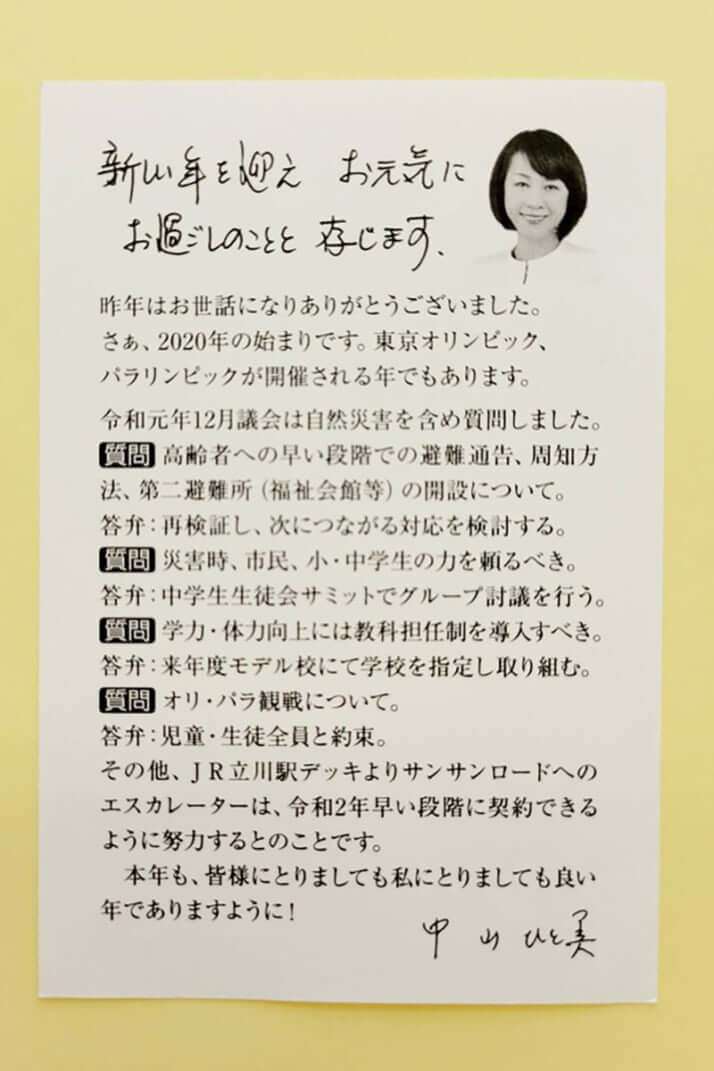 新しい年を迎え お元気に
お過ごしのことと 存じます、
昨年はお世話になりありがとうございました。
さぁ、2020年の始まりです。東京オリンピック、
パラリンピックが開催される年でもあります。
令和元年12月議会は自然災害を含め質問しました。
質問 高齢者への早い段階での避難通告、周知方
法、第二避難所(福祉会館等)の開設について。
答弁:再検証し、次につながる対応を検討する。
質問 災害時、市民、小・中学生の力を頼るべき。
答弁:中学生生徒会サミットでグループ討議を行う。
質問 学力・体力向上には教科担任制を導入すべき。
答弁:来年度モデル校にて学校を指定し取り組む。
質問 オリ・パラ観戦について。
答弁:児童・生徒全員と約束。
その他、JR立川駅デッキよりサンサンロードへの
エスカレーターは、令和2年早い段階に契約できる
ように努力するとのことです。
本年も、皆様にとりましても私にとりましても良い
年でありますように!
中山ひと美